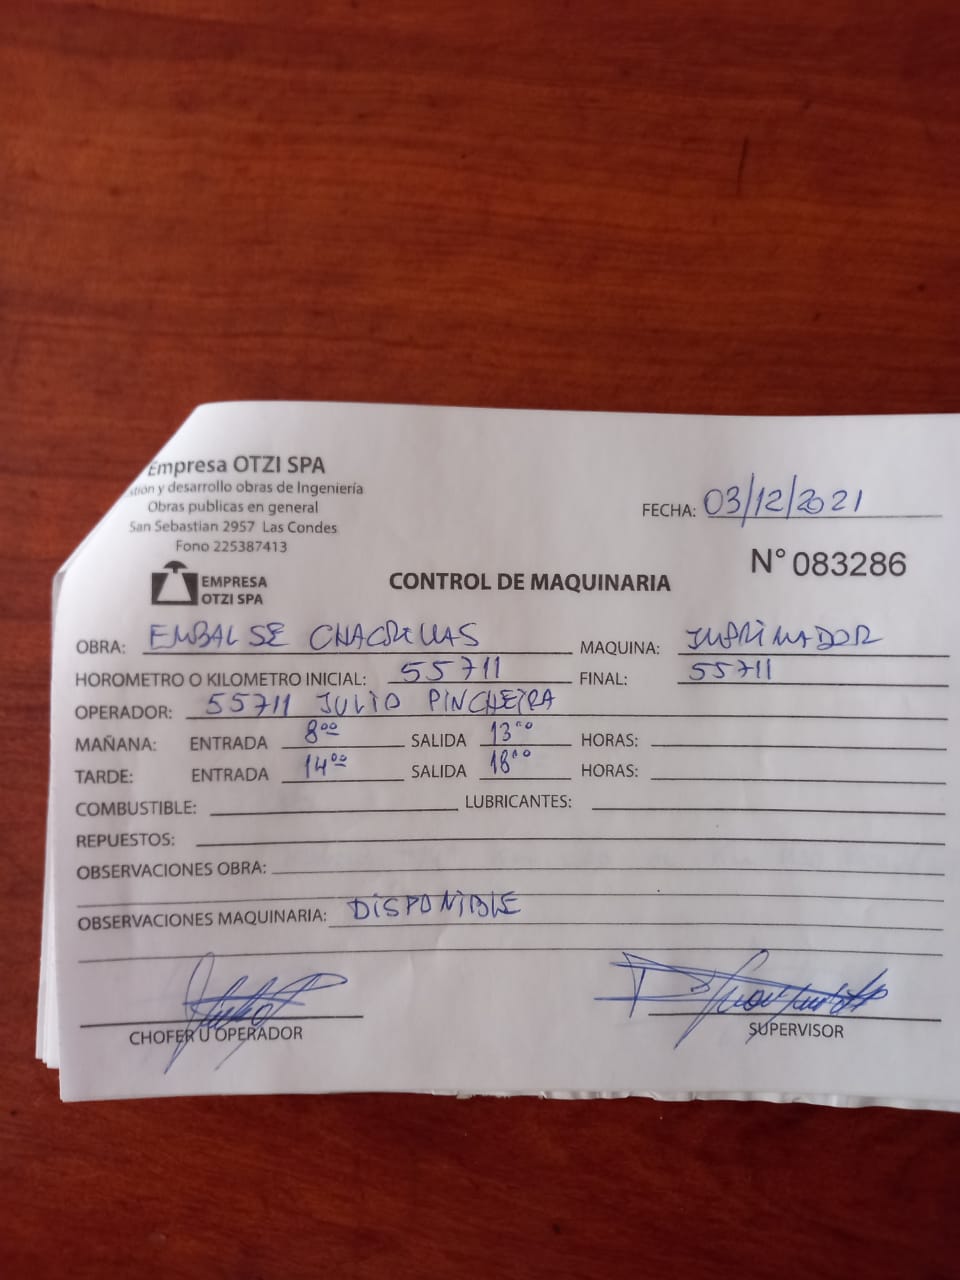 Empresa OTZI SPA
stión y desarrollo obras de Ingeniería
Obras publicas en general
San Sebastian 2957 Las Condes
Fono 225387413
FECHA: 03/12/2021
EMPRESA
OTZI SPA
CONTROL DE MAQUINARIA
N° 083286
OBRA: EMBALSE CHACRILLAS MAQUINA: IMPRIMADOR
HOROMETRO O KILOMETRO INICIAL: 55711 FINAL: 55711
OPERADOR: 55711 JULIO PINCHEIRA
MAÑANA: ENTRADA 8⁰⁰ SALIDA 13⁰⁰ HORAS:
TARDE: ENTRADA 14⁰⁰ SALIDA 18⁰⁰ HORAS:
COMBUSTIBLE: LUBRICANTES:
REPUESTOS:
OBSERVACIONES OBRA:
OBSERVACIONES MAQUINARIA: DISPONIBLE
CHOFER U OPERADOR SUPERVISOR